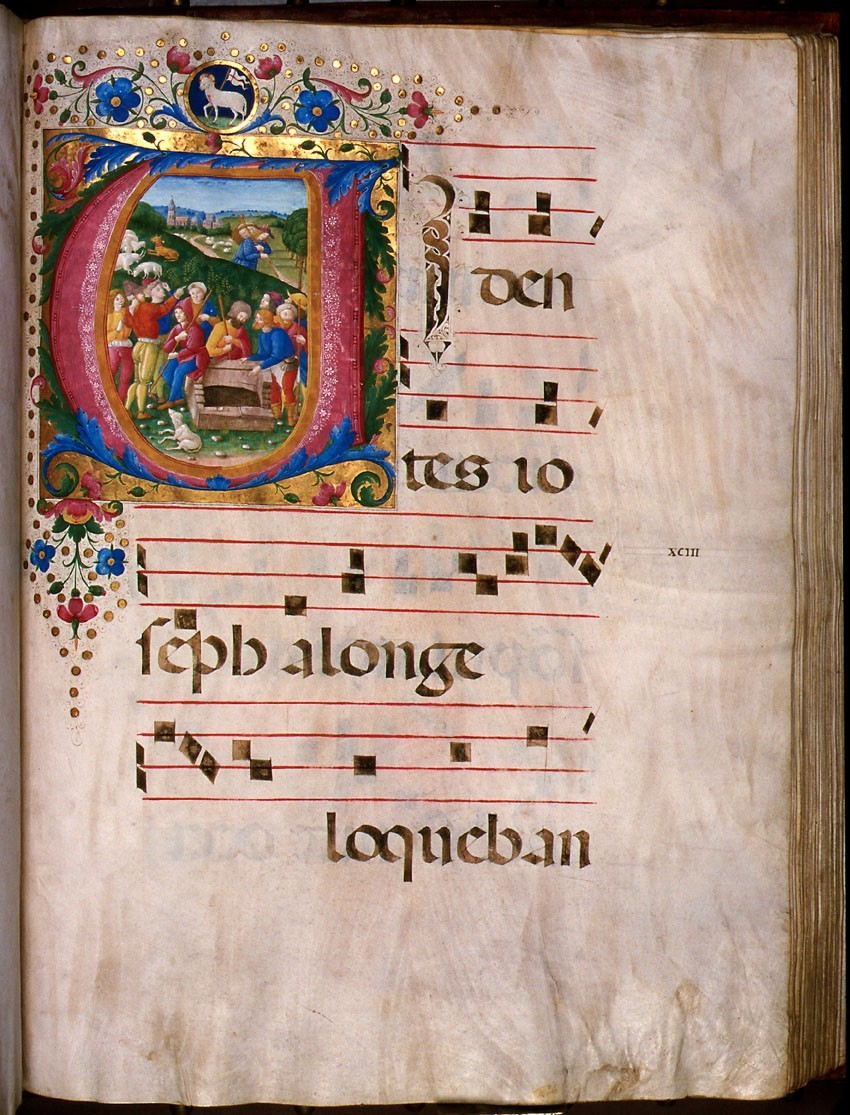 VIden
tes io
seph alonge
XCIII
loqueban